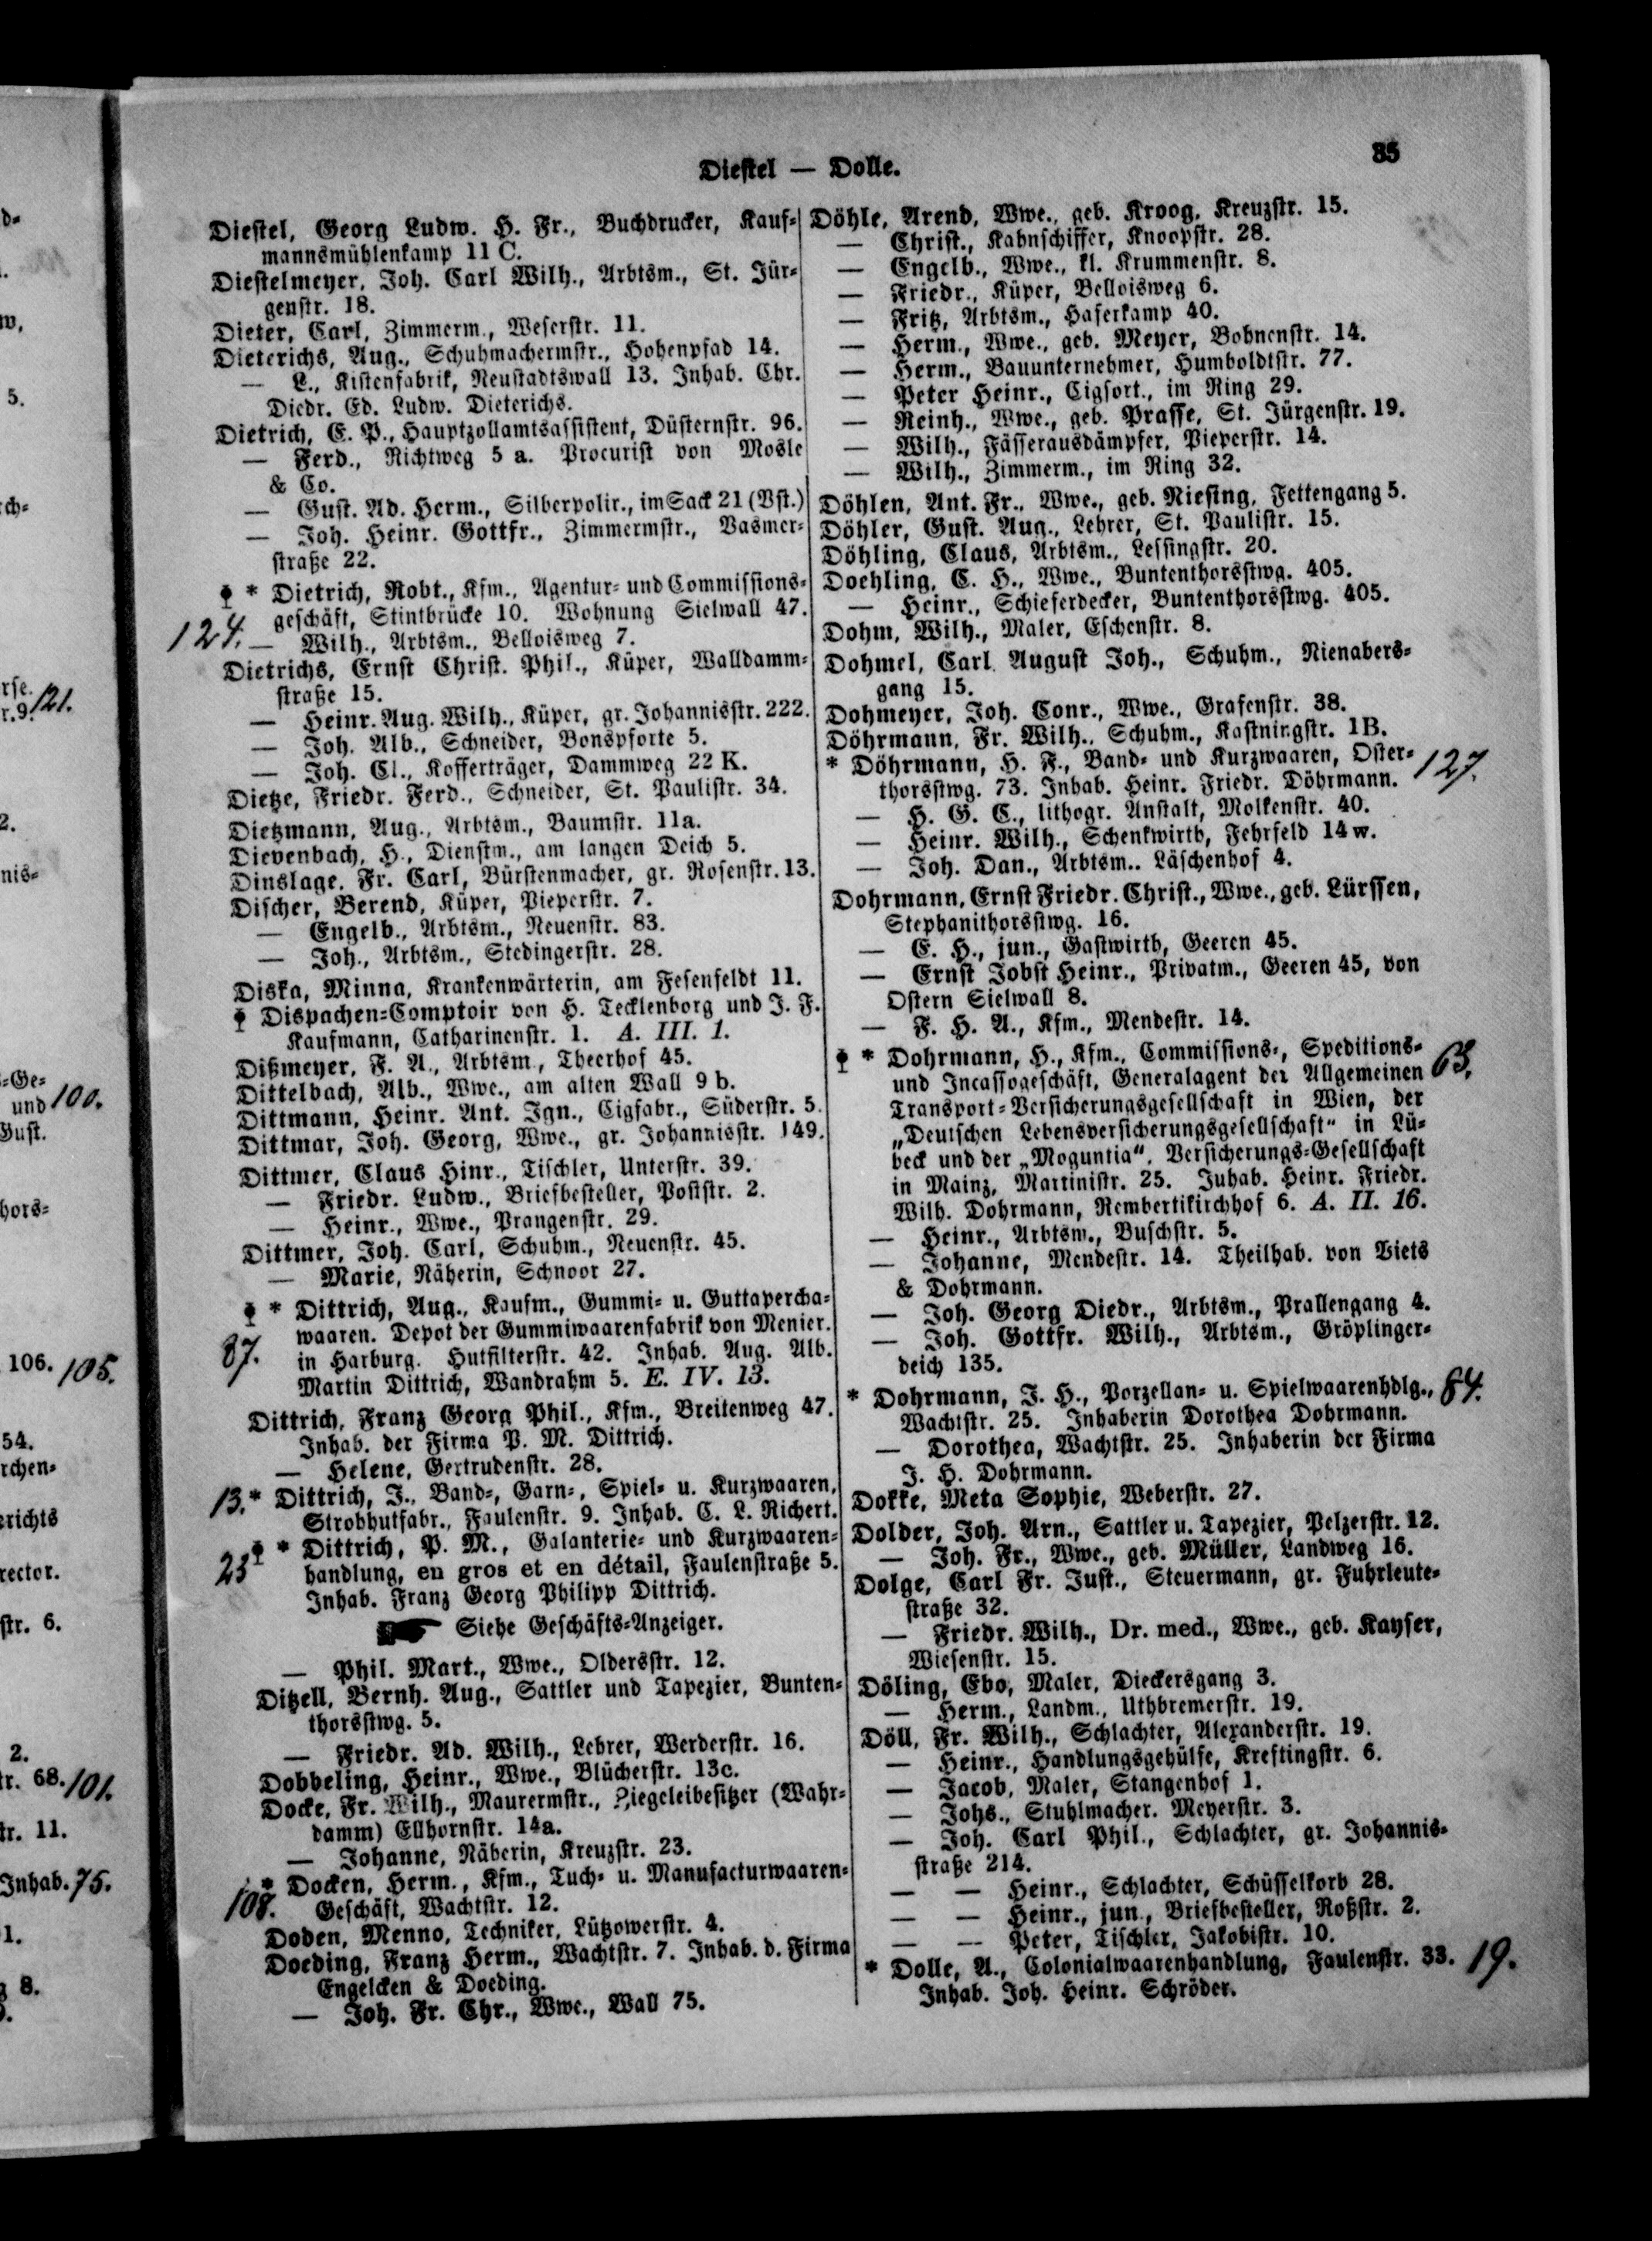 Diestel — Dolle.
85
Diestel, Georg Ludw. H. Fr., Buchdrucker, Kauf-
mannsmühlenkamp 11 C.
Diestelmeyer, Joh. Carl Wilh., Arbtsm., St. Jür-
genstr. 18.
Dieter, Carl, Zimmerm., Weserstr. 11.
Dieterichs, Aug., Schuhmachermstr., Hohenpfad 14.
— L., Kistenfabrik, Neustadtswall 13. Inhab. Chr.
Diedr. Ed. Ludw. Dieterichs.
Dietrich, E. P., Hauptzollamtsassistent, Düsternstr. 96.
— Ferd., Richtweg 5 a. Procurist von Mosle
& Co.
— Gust. Ad. Herm., Silberpolir., im Sack 21 (Vst.)
— Joh. Heinr. Gottfr., Zimmermstr., Vasmer-
straße 22.
* Dietrich, Robt., Kfm., Agentur- und Commissions-
geschäft, Stintbrücke 10. Wohnung Sielwall 47.
124. — Wilh., Arbtsm., Belloisweg 7.
Dietrichs, Ernst Christ. Phil., Küper, Walldamm-
straße 15.
— Heinr. Aug. Wilh., Küper, gr. Johannisstr. 222.
— Joh. Alb., Schneider, Bonspforte 5.
— Joh. Cl., Kofferträger, Dammweg 22 K.
Dietze, Friedr. Ferd., Schneider, St. Paulistr. 34.
Dietzmann, Aug., Arbtsm., Baumstr. 11a.
Dievenbach, H., Dienstm., am langen Deich 5.
Dinslage, Fr. Carl, Bürstenmacher, gr. Rosenstr. 13.
Discher, Berend, Küper, Pieperstr. 7.
— Engelb., Arbtsm., Neuenstr. 83.
— Joh., Arbtsm., Stedingerstr. 28.
Diska, Minna, Krankenwärterin, am Fesenfeldt 11.
Dispachen-Comptoir von H. Tecklenborg und J. F.
Kaufmann, Catharinenstr. 1. A. III. 1.
Dißmeyer, F. A., Arbtsm., Theerhof 45.
Dittelbach, Alb., Wwe., am alten Wall 9 b.
Dittmann, Heinr. Ant. Ign., Cigfabr., Süderstr. 5.
Dittmar, Joh. Georg, Wwe., gr. Johannisstr. 149.
Dittmer, Claus Hinr., Tischler, Unterstr. 39.
— Friedr. Ludw., Briefbesteller, Poststr. 2.
— Heinr., Wwe., Prangenstr. 29.
Dittmer, Joh. Carl, Schuhm., Neuenstr. 45.
— Marie, Näherin, Schnoor 27.
* Dittrich, Aug., Kaufm., Gummi- u. Guttapercha-
waaren. Depot der Gummiwaarenfabrik von Menier.
87. in Harburg. Hutfilterstr. 42. Inhab. Aug. Alb.
Martin Dittrich, Wandrahm 5. E. IV. 13.
Dittrich, Franz Georg Phil., Kfm., Breitenweg 47.
Inhab. der Firma P. M. Dittrich.
— Helene, Gertrudenstr. 28.
13. * Dittrich, J., Band-, Garn-, Spiel- u. Kurzwaaren,
Strohhutfabr., Faulenstr. 9. Inhab. C. L. Richert.
* Dittrich, P. M., Galanterie- und Kurzwaaren-
23 handlung, en gros et en détail, Faulenstraße 5.
Inhab. Franz Georg Philipp Dittrich.
Siehe Geschäfts-Anzeiger.
— Phil. Mart., Wwe., Oldersstr. 12.
Ditzell, Bernh. Aug., Sattler und Tapezier, Bunten-
thorsstwg. 5.
— Friedr. Ad. Wilh., Lehrer, Werderstr. 16.
Dobbeling, Heinr., Wwe., Blücherstr. 13c.
Docke, Fr. Wilh., Maurermstr., Ziegeleibesitzer (Wahr-
damm) Ellhornstr. 14a.
— Johanne, Näherin, Kreuzstr. 23.
* Docken, Herm., Kfm., Tuch- u. Manufacturwaaren-
108. Geschäft, Wachtstr. 12.
Doden, Menno, Techniker, Lützowerstr. 4.
Doeding, Franz Herm., Wachtstr. 7. Inhab. d. Firma
Engelcken & Doeding.
— Joh. Fr. Chr., Wwe., Wall 75.
Döhle, Arend, Wwe., geb. Kroog, Kreuzstr. 15.
— Christ., Kahnschiffer, Knoopstr. 28.
— Engelb., Wwe., kl. Krummenstr. 8.
— Friedr., Küper, Belloisweg 6.
— Fritz, Arbtsm., Haferkamp 40.
— Herm., Wwe., geb. Meyer, Bohnenstr. 14.
— Herm., Bauunternehmer, Humboldtstr. 77.
— Peter Heinr., Cigsort., im Ring 29.
— Reinh., Wwe., geb. Prasse, St. Jürgenstr. 19.
— Wilh., Fässerausdämpfer, Pieperstr. 14.
— Wilh., Zimmerm., im Ring 32.
Döhlen, Ant. Fr., Wwe., geb. Niesing, Fettengang 5.
Döhler, Gust. Aug., Lehrer, St. Paulistr. 15.
Döhling, Claus, Arbtsm., Lessingstr. 20.
Doehling, C. H., Wwe., Buntenthorsstwg. 405.
— Heinr., Schieferdecker, Buntenthorsstwg. 405.
Dohm, Wilh., Maler, Eschenstr. 8.
Dohmel, Carl August Joh., Schuhm., Nienabers-
gang 15.
Dohmeyer, Joh. Conr., Wwe., Grafenstr. 38.
Döhrmann, Fr. Wilh., Schuhm., Kastningstr. 1B.
* Döhrmann, H. F., Band- und Kurzwaaren, Oster- 127.
thorsstwg. 73. Inhab. Heinr. Friedr. Döhrmann.
— H. G. C., lithogr. Anstalt, Molkenstr. 40.
— Heinr. Wilh., Schenkwirth, Fehrfeld 14 w.
— Joh. Dan., Arbtsm.. Läschenhof 4.
Dohrmann, Ernst Friedr. Christ., Wwe., geb. Lürssen,
Stephanithorsstwg. 16.
— E. H., jun., Gastwirth, Geeren 45.
— Ernst Jobst Heinr., Privatm., Geeren 45, von
Ostern Sielwall 8.
— F. H. A., Kfm., Mendestr. 14.
* Dohrmann, H., Kfm., Commissions-, Speditions- 63.
und Incassogeschäft, Generalagent der Allgemeinen
Transport-Versicherungsgesellschaft in Wien, der
„Deutschen Lebensversicherungsgesellschaft“ in Lü-
beck und der „Moguntia“, Versicherungs-Gesellschaft
in Mainz, Martinistr. 25. Inhab. Heinr. Friedr.
Wilh. Dohrmann, Rembertikirchhof 6. A. II. 16.
— Heinr., Arbtsm., Buschstr. 5.
— Johanne, Mendestr. 14. Theilhab. von Viets
& Dohrmann.
— Joh. Georg Diedr., Arbtsm., Prallengang 4.
— Joh. Gottfr. Wilh., Arbtsm., Gröplinger-
deich 135.
* Dohrmann, J. H., Porzellan- u. Spielwaarenhdlg., 84.
Wachtstr. 25. Inhaberin Dorothea Dohrmann.
— Dorothea, Wachtstr. 25. Inhaberin der Firma
J. H. Dohrmann.
Dokke, Meta Sophie, Weberstr. 27.
Dolder, Joh. Arn., Sattler u. Tapezier, Pelzerstr. 12.
— Joh. Fr., Wwe., geb. Müller, Landweg 16.
Dolge, Carl Fr. Just., Steuermann, gr. Fuhrleute-
straße 32.
— Friedr. Wilh., Dr. med., Wwe., geb. Kayser,
Wiesenstr. 15.
Döling, Ebo, Maler, Dieckersgang 3.
— Herm., Landm., Uthbremerstr. 19.
Döll, Fr. Wilh., Schlachter, Alexanderstr. 19.
— Heinr., Handlungsgehülfe, Kreftingstr. 6.
— Jacob, Maler, Stangenhof 1.
— Johs., Stuhlmacher. Meyerstr. 3.
— Joh. Carl Phil., Schlachter, gr. Johannis-
straße 214.
— — Heinr., Schlachter, Schüsselkorb 28.
— — Heinr., jun., Briefbesteller, Roßstr. 2.
— — Peter, Tischler, Jakobistr. 10.
* Dolle, A., Colonialwaarenhandlung, Faulenstr. 33. 19.
Inhab. Joh. Heinr. Schröder.
d-
5.
rse.
r. 9. 121.
2.
nis-
-Ge-
und 100.
Gust.
hors-
106. 105.
54.
rchen-
erichts
rector.
str. 6.
2.
tr. 68. 101.
tr. 11.
Inhab. 75.
1.
g 8.